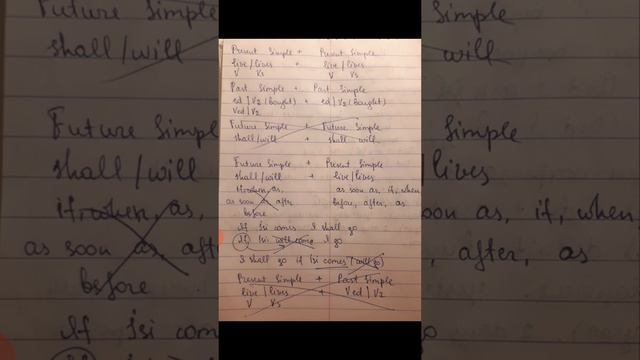 Present Simple + Present Simple
live/lives + live/lives
V Vs V Vs
Past Simple + Past Simple
ed | V2 (Bought) + ed | V2 (Bought)
Ved | V2
Future Simple + Future Simple
shall/will + shall will
Future Simple + Present Simple
shall/will + live/lives
If, when, as, as soon as, if, when
as soon as, after before, after, as
before
If Isi comes I shall go
If Isi will come I go
I shall go if Isi comes (will go)
Present Simple + Past Simple
live | lives + Ved | V2
V Vs
Future Simple
shall/will
Future Simple
shall/will
if, when, as,
as soon
before
If Isi comes
Simple
will
Simple
lives
as, if, when
, after, as